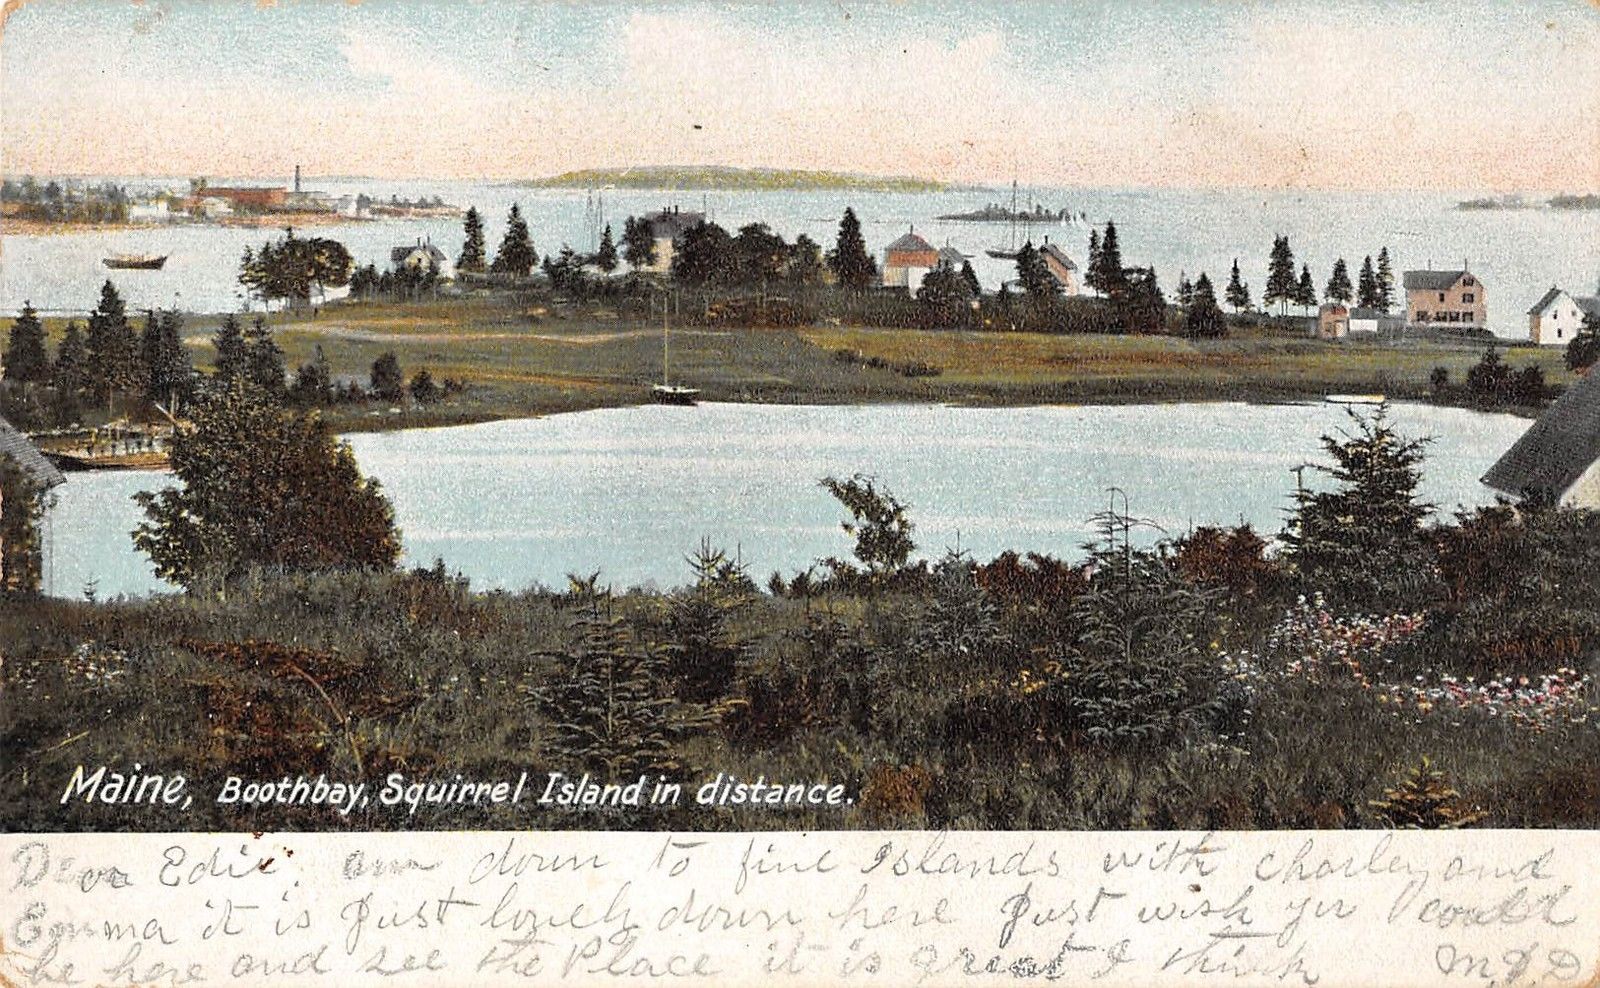 Maine, Boothbay, Squirrel Island in distance.
Dear Edie. am down to five Islands with Charley and
Emma it is Just lovely down here Just wish you could
be here and see the Place it is great I think M.D.D